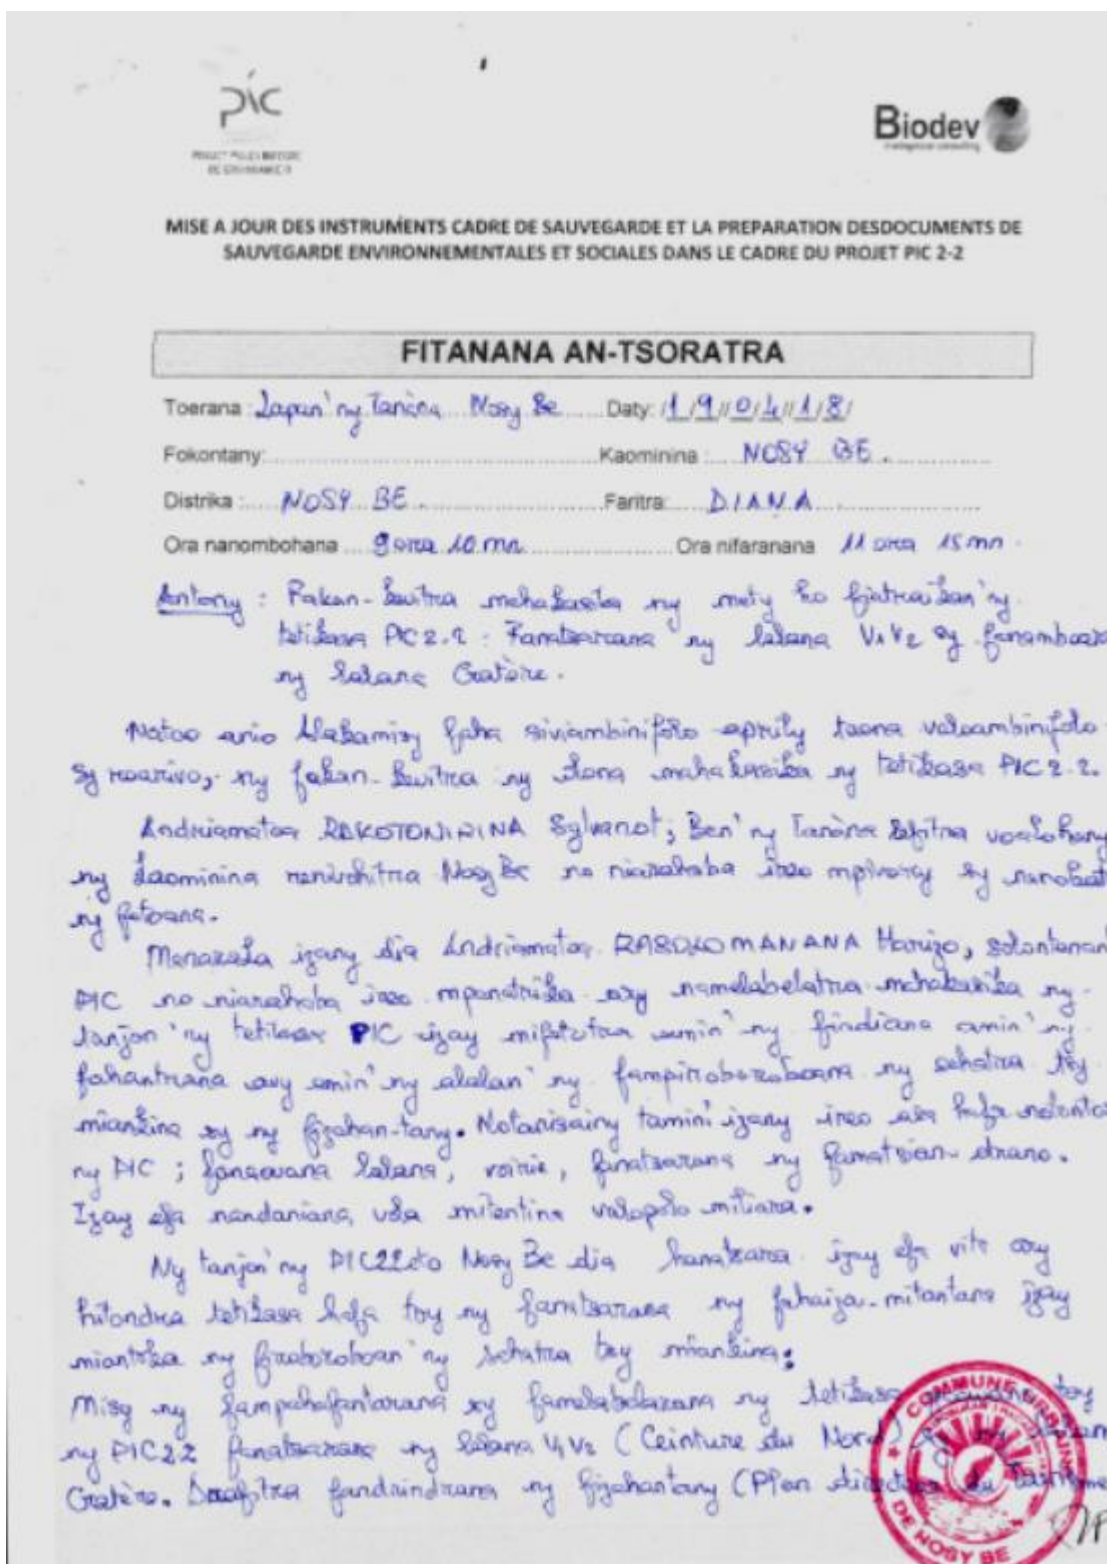 pic
Biodev
MISE A JOUR DES INSTRUMENTS CADRE DE SAUVEGARDE ET LA PREPARATION DESDOCUMENTS DE
SAUVEGARDE ENVIRONNEMENTALES ET SOCIALES DANS LE CADRE DU PROJET PIC 2-2
FITANANA AN-TSORATRA
Toerana : Lapan'ny Tanàna Nosy Be Daty: /1/9//0/4//1/8/
Fokontany: Kaominina : NOSY BE.
Distrika : NOSY BE Faritra: DIANA
Ora nanombohana 9 ora 10 mn Ora nifaranana 11 ora 15 mn.
Antony : Fakan-kevitra mahakasika ny mety ho fiatraikan'ny
tetikasa PIC 2.2 : Fanatsarana ny lalana V1V2 sy
ny lalana Cratère.
Natao anio Alakamisy faha siviambinifolo aprily taona valoambinifolo
sy roarivo, ny fakan-kevitra ny olona mahakasika ny tetikasa PIC 2.2.
Andriamatoa RAKOTONIRINA Sylvanot, Ben'ny Tanàna lefitra voalohany
ny kaominina renivohitra Nosy Be no niarahaba ireo mpivory sy
ny fotoana.
Manaraka izany dia Andriamatoa RASOLOMANANA Harizo,
PIC no niarahaba ireo mpanatrika ary namelabelatra mahakasika ny
tanjon'ny tetikasa PIC izay mifototra amin'ny findiana amin'ny
fahantrana avy amin'ny alalan'ny fampiroboroboana ny sehatra tsy
miankina sy ny fizahan-tany. Notanisainy tamin'izany ireo asa
ny PIC ; fanaovana lalana, voirie, fanatsarana ny famatsian-drano.
Izay efa nandaniana vola mitentina valopolo miliara.
Ny tanjon'ny PIC22 eto Nosy Be dia hanatsara izay efa vita ary
hitondra tetikasa hafa toy ny fanatsarana ny fahaiza-mitantana izay
miantoka ny firoboroboan'ny sehatra tsy miankina.
Misy ny fampahafantarana sy famelabelarana ny tetikasa
ny PIC22 fanatsarana ny lalana V1V2 (Ceinture du Nord) sy ny
Cratère. fandrindrana ny fizahantany (Plan directeur du
COMMUNE URBAINE
DE NOSY BE